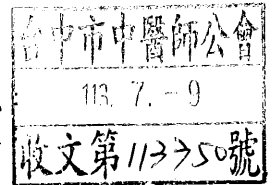 台中市中醫師公會
113. 7. -9
收文第113750號